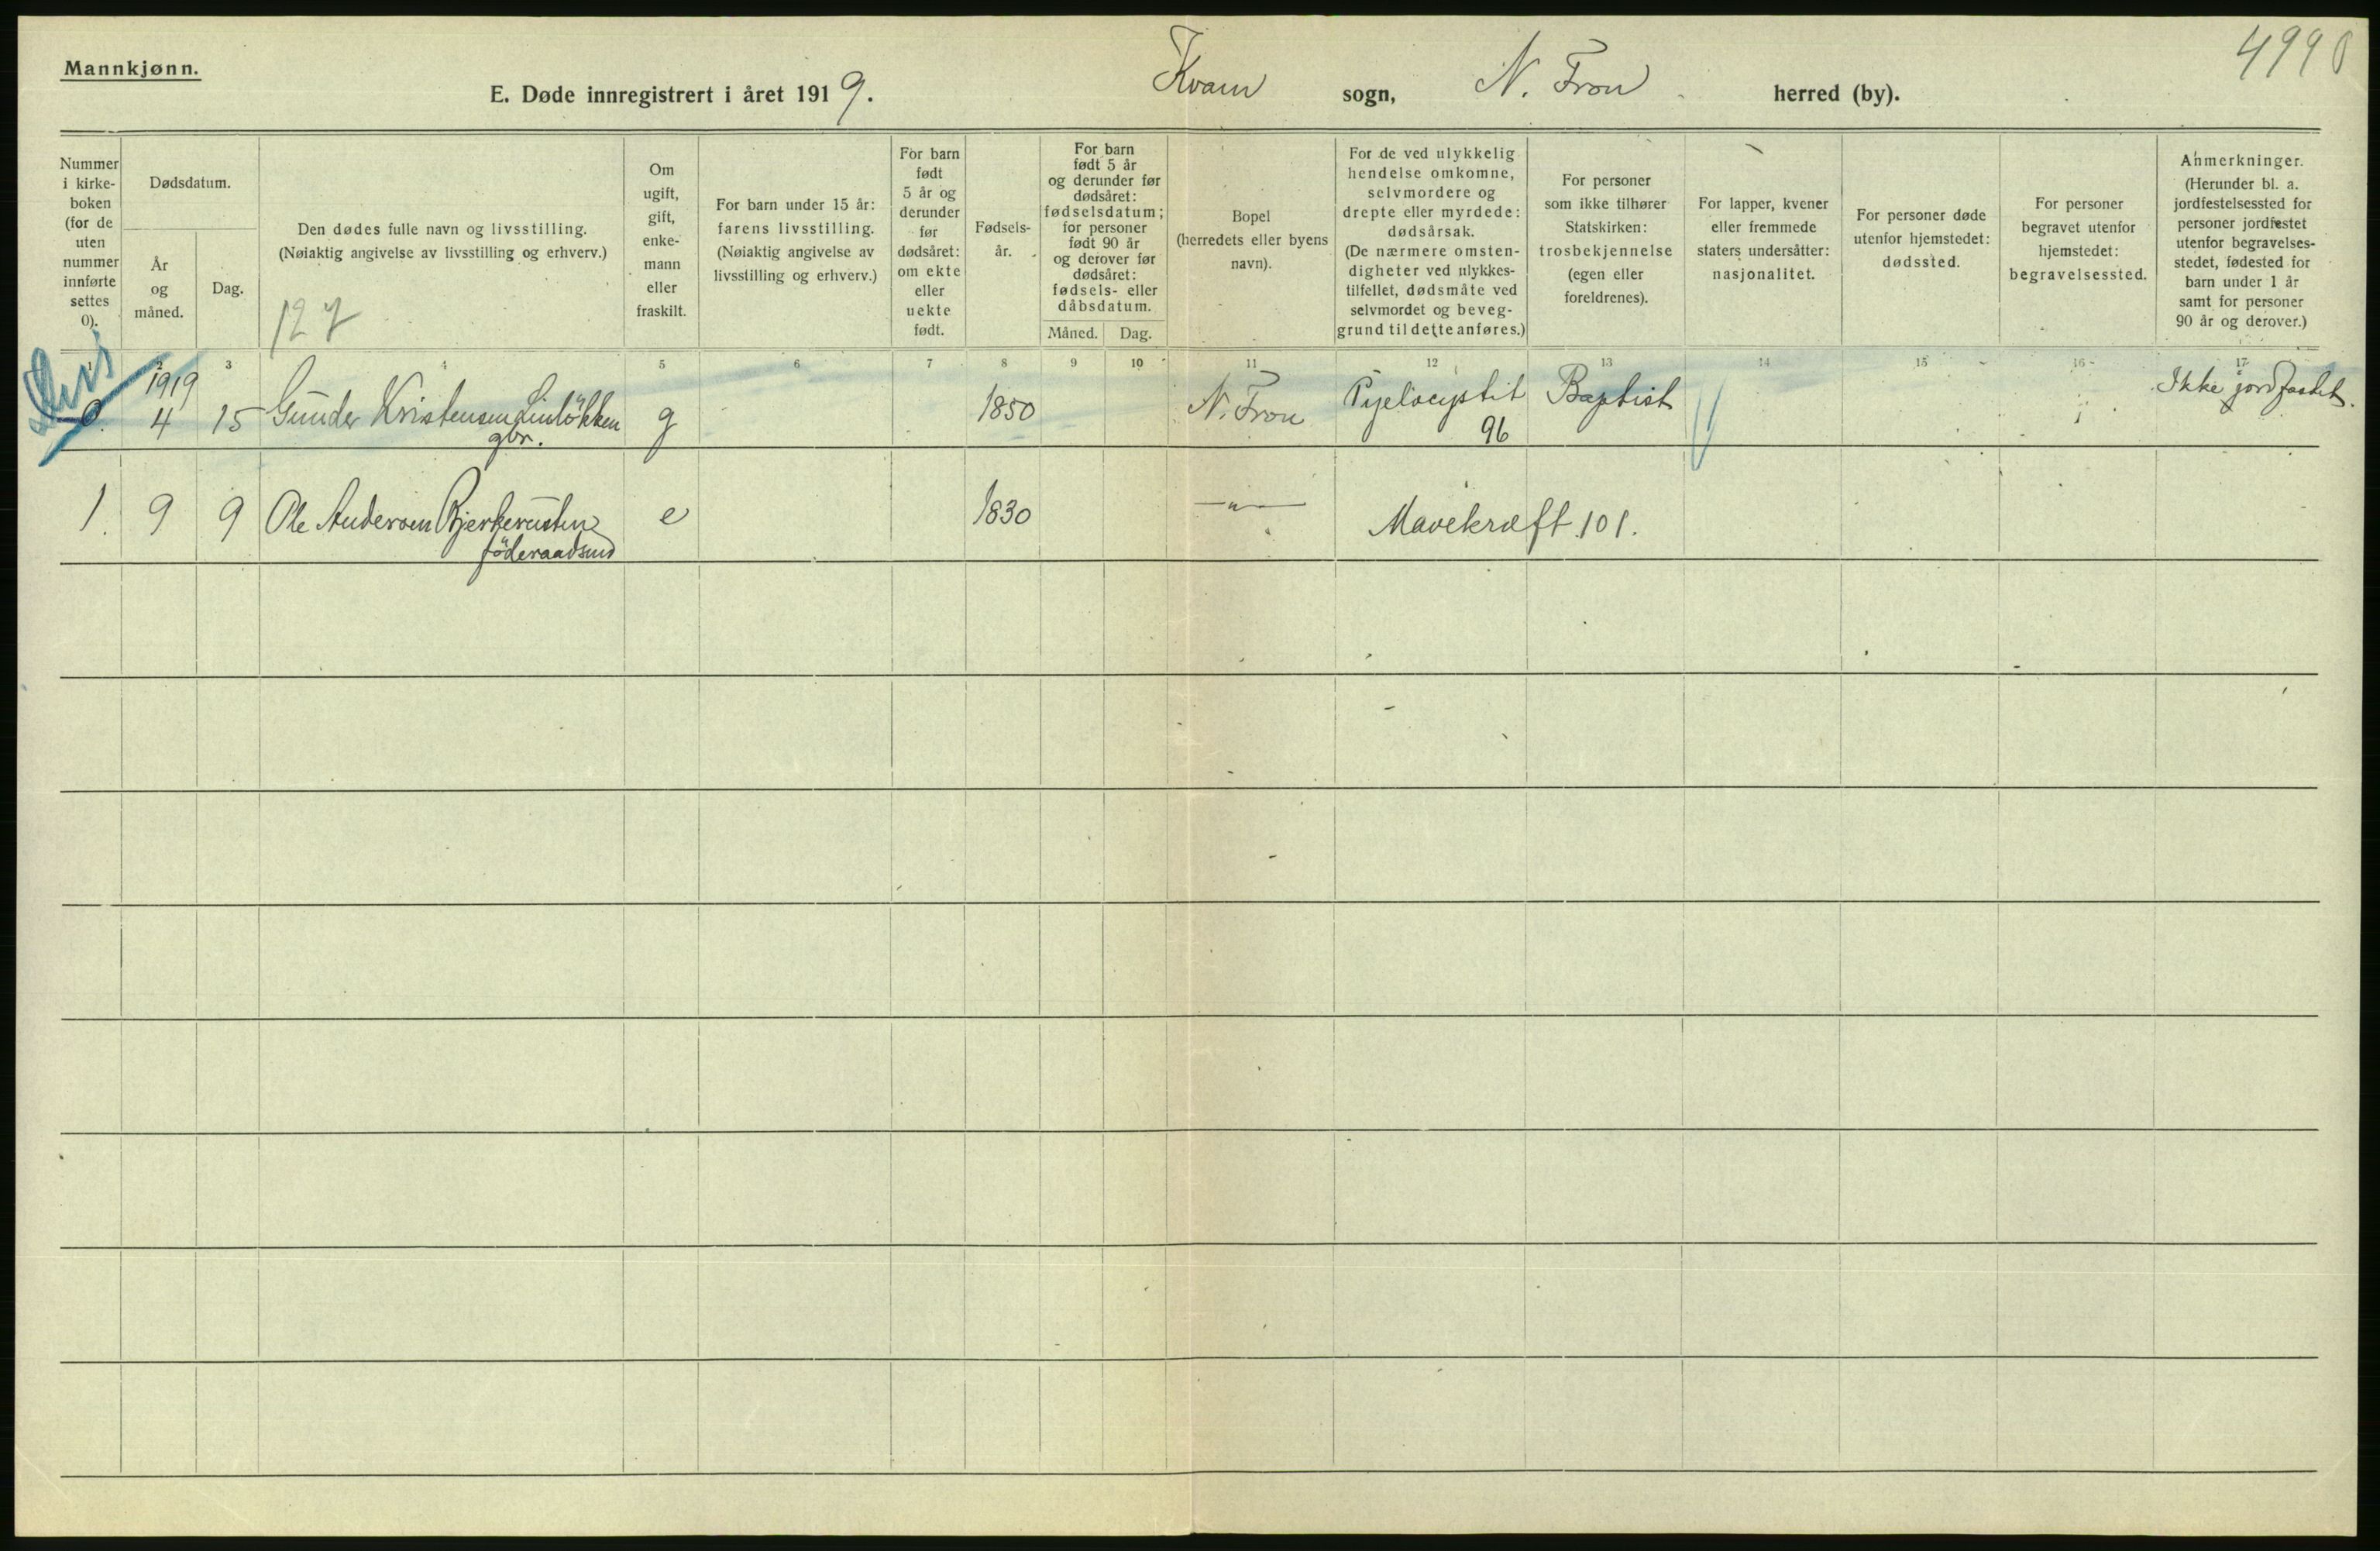 4990
Mannkjønn.
E. Døde innregistrert i året 1919. Kvam sogn, N. Fron herred (by).
Nummer
i kirke-
boken
(for de
uten
nummer
innførte
settes
0).
Dødsdatum.
År
og
måned.
Dag.
Den dødes fulle navn og livsstilling.
(Nøiaktig angivelse av livsstilling og erhverv.)
127
Om
ugift,
gift,
enke-
mann
eller
fraskilt.
For barn under 15 år:
farens livsstilling.
(Nøiaktig angivelse av
livsstilling og erhverv.)
For barn
født
5 år og
derunder
før
dødsåret:
om ekte
eller
uekte
født.
Fødsels-
år.
For barn
født 5 år
og derunder før
dødsåret:
fødselsdatum;
for personer
født 90 år
og derover før
dødsåret:
fødsels- eller
dåbsdatum.
Måned. Dag.
Bopel
(herredets eller byens
navn).
For de ved ulykkelig
hendelse omkomne,
selvmordere og
drepte eller myrdede:
dødsårsak.
(De nærmere omsten-
digheter ved ulykkes-
tilfellet, dødsmåte ved
selvmordet og beveg-
grund til dette anføres.)
For personer
som ikke tilhører
Statskirken:
trosbekjennelse
(egen eller
foreldrenes).
For lapper, kvener
eller fremmede
staters undersåtter:
nasjonalitet.
For personer døde
utenfor hjemstedet:
dødssted.
For personer
begravet utenfor
hjemstedet:
begravelsessted.
Anmerkninger.
(Herunder bl. a.
jordfestelsessted for
personer jordfestet
utenfor begravelses-
stedet, fødested for
barn under 1 år
samt for personer
90 år og derover.)
1 2 3 4 5 6 7 8 9 10 11 12 13 14 15 16 17
1919
0. 4 15 Gunder Kristensen Linløkken g 1850 N. Fron Pyelocystit Baptist Ikke jordfæstet.
gbr. 96
1. 9 9 Ole Andersen Bjerkerusten e 1830 —"— Mavekræft 101.
föderaadsmd